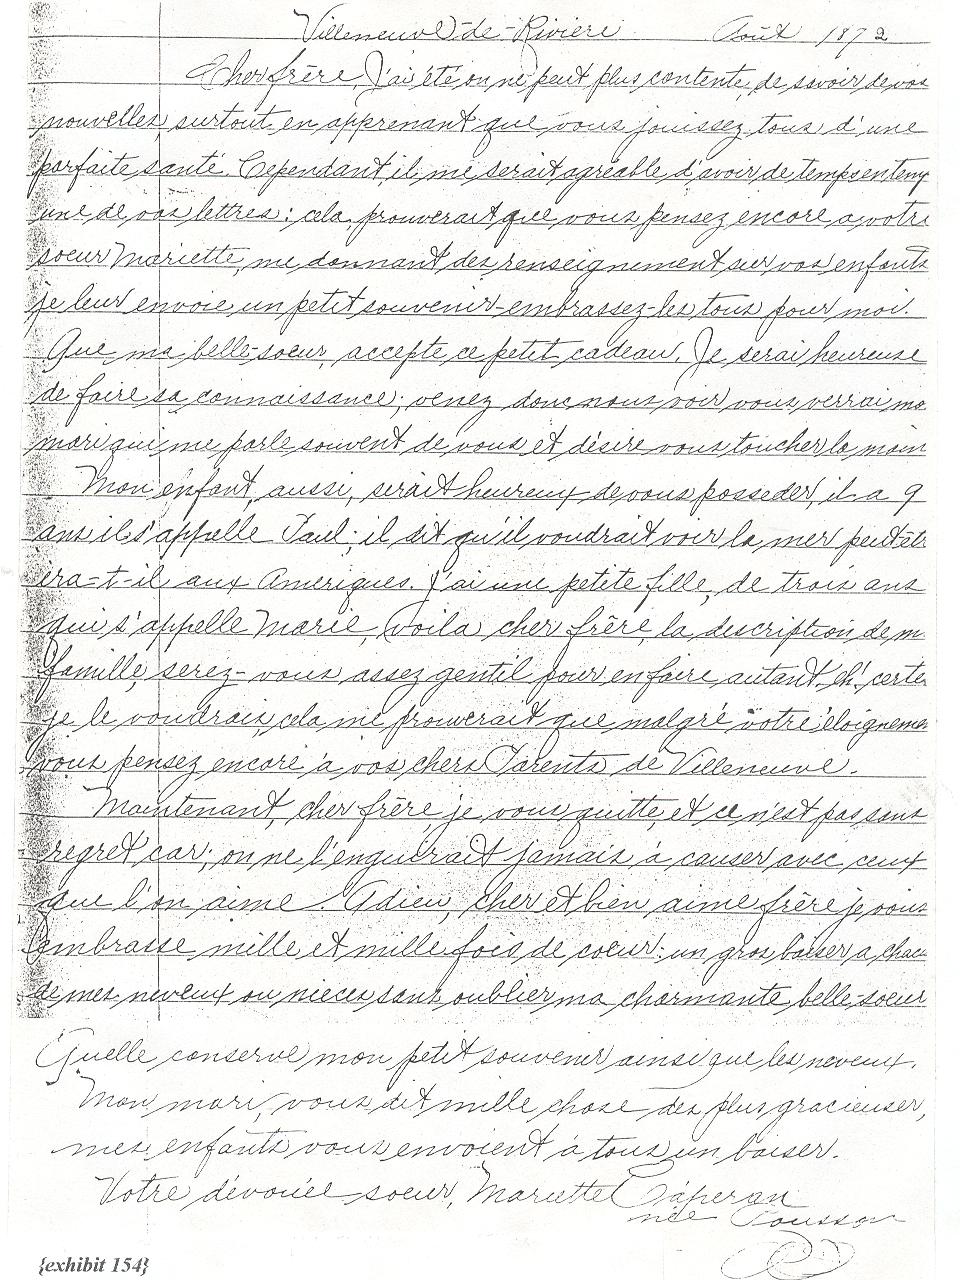 Villeneuve-de-Rivière Août 1872
Cher frère, J'ai été on ne peut plus contente, de savoir de vos
nouvelles surtout en apprenant que vous jouissez tous d'une
parfaite santé. Cependant il me serait agréable d'avoir de temps en temp
une de vos lettres: cela, prouverait que vous pensez encore a votre
soeur Mariette, me donnant des renseignement sur vos enfants
je leur envoie un petit souvenir-embrassez-les tous pour moi.
Que ma belle-soeur, accepte ce petit cadeau. Je serai heureuse
de faire sa connaissance; venez donc nous voir vous verrai mo
mari qui me parle souvent de vous et désire vous toucher la main
Mon enfant, aussi, serait heureux de vous posseder, il a 9
ans il s'appelle Paul; il dit qu'il voudrait voir la mer peut êtr
ira-t-il aux Ameriques. J'ai une petite fille, de trois ans
qui s'appelle Marie, voila cher frère, la description de m
famille, serez-vous assez gentil pour en faire autant eh! certe
je le voudrais, cela me prouverait que malgré votre éloigneme
vous pensez encore à vos chers Parents de Villeneuve.
Maintenant, cher frère, je vous quitte, et ce n'est pas sans
regret car; on ne l'enquirait jamais à causer avec ceux
que l'on aime. Adieu, cher et bien aime frère je vous
embrasse mille et mille fois de coeur: un gros baiser a chac
de mes neveux ou nieces sans oublier ma charmante belle-soeur
Quelle conserve mon petit souvenir ainsi que les neveux.
Mon mari, vous dit mille chose des plus gracieuser,
mes enfants vous envoient à tous un baiser.
Votre dévouée soeur, Mariette Caperan
née Pousson
{exhibit 154}